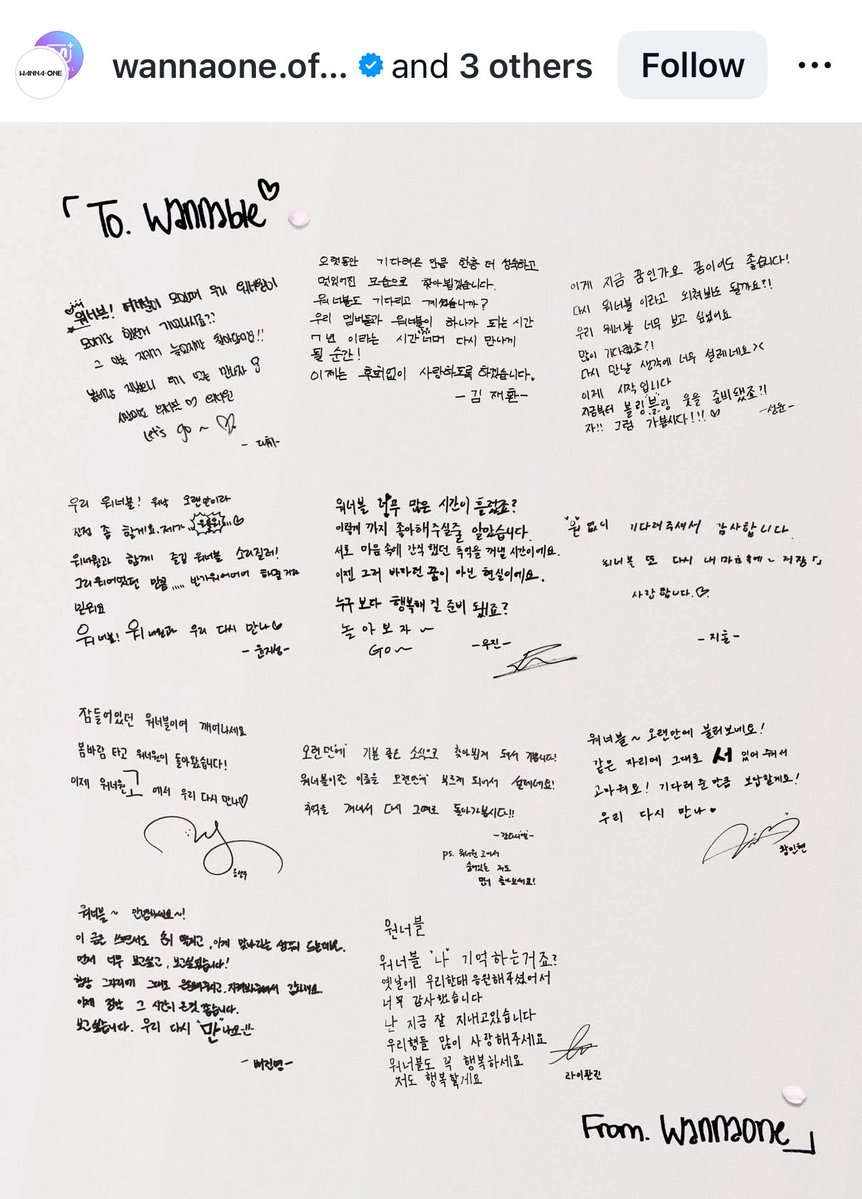 WANNA·ONE
wannaone.of... and 3 others
Follow
「To. Wannable
워너블!
그
Let's go ~
-대휘-
오랫동안 기다려온 만큼 한층 더 성숙하고
멋있어진 모습으로 찾아뵙겠습니다.
워너블도 기다리고 계셨습니까?
우리 멤버들과 워너블이 하나가 되는 시간
7년 이라는 시간 너머 다시 만나게
될 순간!
이제는 후회없이 사랑하도록 하겠습니다.
- 김재환 -
이게 지금 꿈인가요 꿈이어도 좋습니다!
다시 워너블 이라고 외쳐봐도 될까요?!
우리 워너블 너무 보고 싶었어요
많이 기다렸죠?!
다시 만날 생각에 너무 설레네요><
이제 시작입니다
지금부터 블링블링 웃을 준비됐죠?!
자!! 그럼 가봅시다!!!
-성운-
우리 워너블! 워낙 오랜만이라
긴장 좀 할게요. 제가
워너원과 함께 즐길 워너블 소리질러!
그리워어었던 만큼,,,,, 반가워어어어
믿을게요
워너블! 워너원과 우리 다시 만나
-윤지성-
워너블 너무 많은 시간이 흘렀죠?
이렇게 까지 좋아해주실줄 알았습니다.
서로 마음 속에 간직했던 추억을 꺼낼 시간이에요.
이젠 그리 바라던 꿈이 아닌 현실이에요.
누구 보다 행복해 질 준비 됐죠?
놀아보자~
GO~
-우진-
원 없이 기다려주셔서 감사합니다.
워너블 또 다시 내 마음속에~ 저장
사랑합니다.
- 지훈 -
잠들어있던 워너블이여 깨어나세요
봄바람 타고 워너원이 돌아왔습니다!
이제 워너원고 에서 우리 다시 만나
옹성우
오랜만에 기분 좋은 소식으로 찾아뵙게 되어서 기쁩니다!
워너블이란 이름을 오랜만에 부르게 되어서 설레네요!
추억을 꺼내서 다시 그때로 돌아가봅시다!!
-강다니엘-
ps. 워너원 고에서
숨어있는 저도
많이 찾아보세요!
워너블~ 오랜만에 불러보네요!
같은 자리에 그대로 서 있어 줘서
고마워요! 기다려준 만큼 보답할게요!
우리 다시 만나
황민현
워너블~ 안녕하세요~!
이 글을 쓰면서도 손이 떨리고, 이게 맞나라는 생각이 드는데요.
먼저 너무 보고싶고, 보고싶었습니다!
항상 그자리에 그대로 응원해주시고, 지켜봐주셔서 감사해요.
이제 정말 그 시간이 온것 같습니다.
보고싶습니다. 우리 다시 "만"나요!!
-배진영-
워너블
워너블 '나' 기억하는거죠?
옛날에 우리한테 응원해주셨어서
너무 감사했습니다
난 지금 잘 지내고있습니다
우리형들 많이 사랑해주세요
워너블도 꼭 행복하세요
저도 행복할게요
라이관린
From. Wannaone」